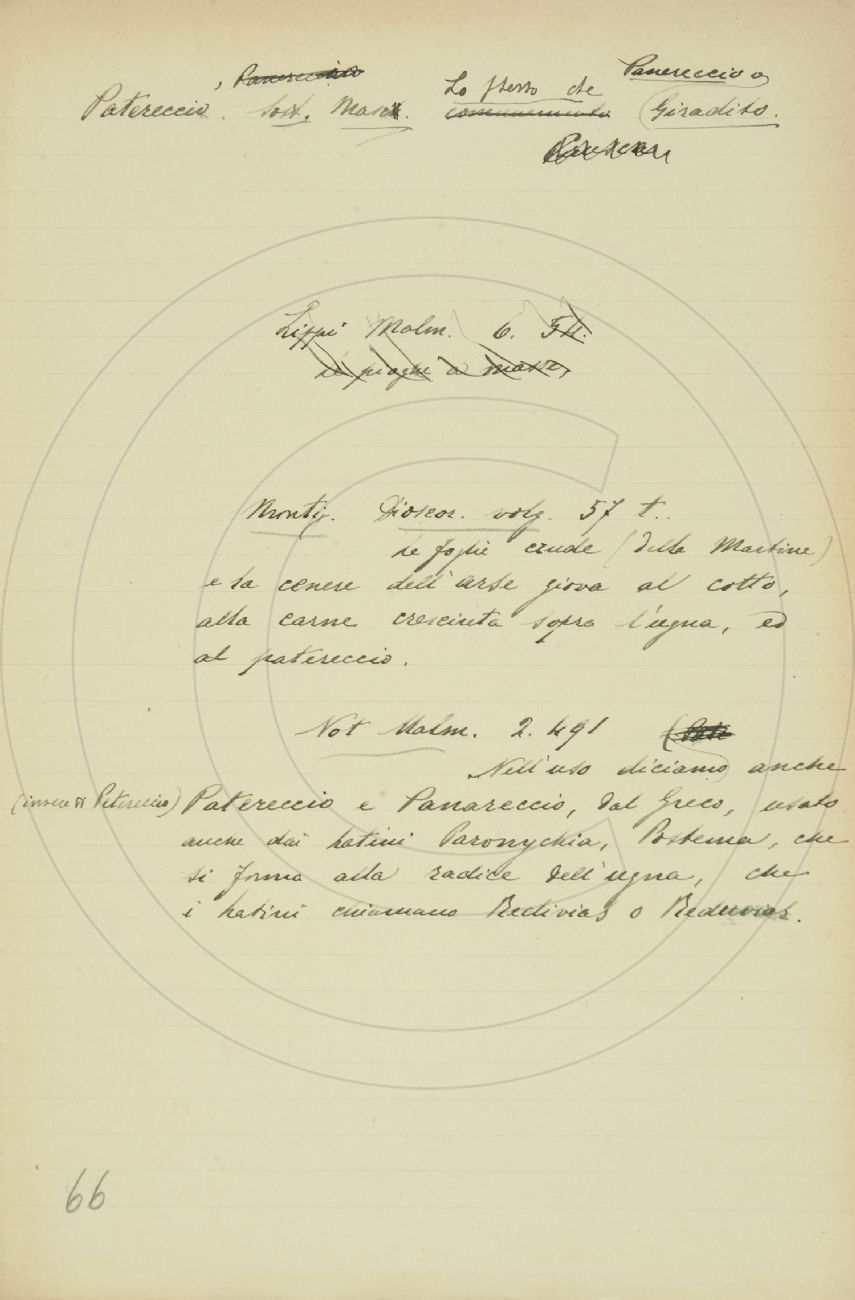 , Panereccio
Patereccio. Sost. Masc. Lo stesso che Panereccio o
comunemente Giradito.
Lippi Malm. 6. 54.
le piaghe a
Montig. Dioscor. volg. 57 t..
Le foglie crude (della Martine)
e la cenere dell'arse giova al cotto,
alla carne cresciuta sopra l'ugna, ed
al patereccio.
Not Malm. 2. 491
Nell'uso diciamo anche
(invece di Petereccio) Patereccio e Panareccio, dal Greco, usato
anche dai Latini Paronychia, Postema, che
si forma alla radice dell'ugna, che
i Latini chiamano Redivias o Reduvias.
66